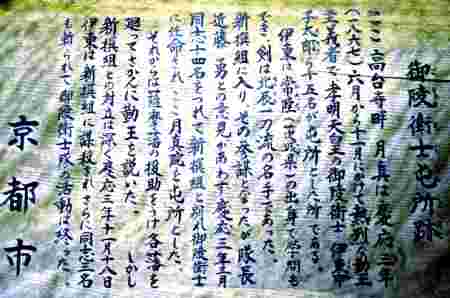 御陵衛士屯所跡
ここ高台寺畔 月真院は慶応三年
(一八六七)六月から十一月にかけて熱烈な勤王
主義者で、孝明天皇の御陵衛士 伊東甲
子太郎ら十五名が屯所とした所である。
伊東は常陸(茨城県)の出身で学問も
でき、剣は北辰一刀流の名手であった。
新撰組に入り、その参謀となったが隊長
近藤 勇との意見があわず慶応三年三月
同士十四名をつれて新撰組と別れ御陵衛士
に任命され、ここ月真院を屯所とした。
それからは薩摩藩の援助をうけ各藩を
廻ってさかんに勤王を説いた。しかし
新撰組との対立は深く慶応三年十一月十八日
伊東は新撰組に謀殺され、さらに同志三名
も斬られて御陵衛士隊の活動は終った。
京都市